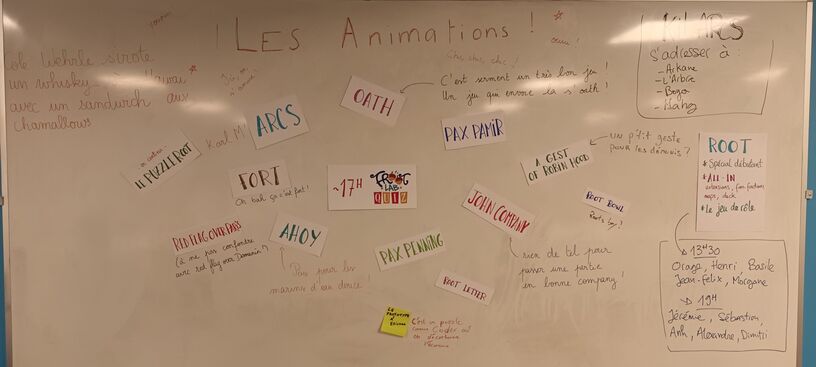 Les Animations !
Cole Wehrle sirote
un whisky
avec un sandwich aux
Chamallows
KIT ARCS
S'adresser à :
- Arkane
- L'Arbre
- Bozo
OATH
C'est serment un très bon jeu !
Un jeu qui envoie la s'oath !
ARCS
Karl M
PAX PAMIR
LE PUZZLE ROOT
en continu
A GIST
OF ROBIN HOOD
un p'tit geste
pour les démunis ?
ROOT
* Spécial débutant
* ALL-IN
extensions, fan factions
maps, deck
* Le jeu de rôle
FORT
Oh bah ça c'est fort !
~17H
FROOT
LAB
QUIZ
ROOT BOWL
JOHN COMPANY
rien de tel pour
passer une partie
en bonne company !
RED FLAG OVER PARIS
(à ne pas confondre
avec red flag over Damien !)
AHOY
Pas pour les
marins d'eau douce !
PAX PENNING
ROOT LETTER
C'est un puzzle
13H30
Orage, Henri, Basile
Jean-Felix, Morgane
19H
Jérémie, Sébastien,
Anh, Alexandre, Dimitri